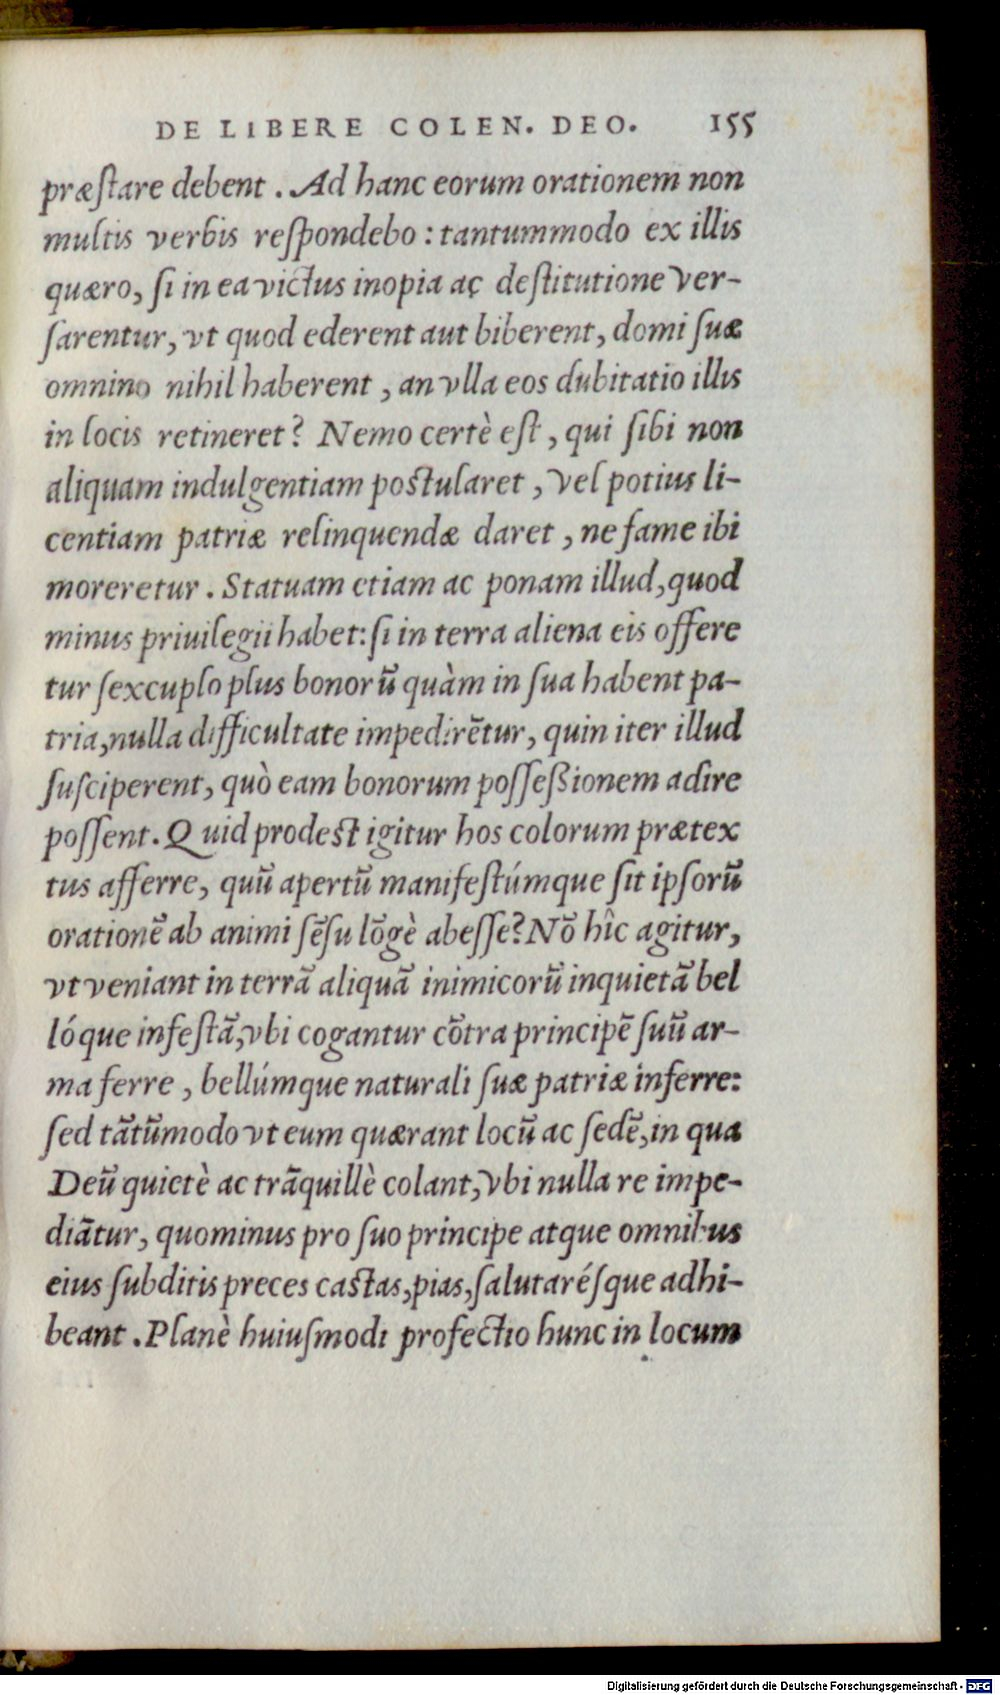 DE LIBERE COLEN. DEO. 155
præſtare debent. Ad hanc eorum orationem non
multis verbis reſpondebo: tantummodo ex illis
quæro, ſi in ea victus inopia ac deſtitutione ver-
ſarentur, vt quod ederent aut biberent, domi ſuæ
omnino nihil haberent, an vlla eos dubitatio illis
in locis retineret? Nemo certè eſt, qui ſibi non
aliquam indulgentiam poſtularet, vel potius li-
centiam patriæ relinquendæ daret, ne fame ibi
moreretur. Statuam etiam ac ponam illud, quod
minus priuilegii habet: ſi in terra aliena eis offere
tur ſexcuplo plus bonorũ quàm in ſua habent pa-
tria, nulla difficultate impedirẽtur, quin iter illud
ſuſciperent, quò eam bonorum poſſeßionem adire
poſſent. Quid prodeſt igitur hos colorum prætex
tus afferre, quũ apertũ manifeſtúmque ſit ipſorũ
orationẽ ab animi ſẽſu lõgè abeſſe? Nõ hîc agitur,
vt veniant in terrã aliquã inimicorũ inquietã bel
lóque infeſtã, vbi cogantur cõtra principẽ ſuũ ar-
ma ferre, bellúmque naturali ſuæ patriæ inferre:
ſed tãtũmodo vt eum quærant locũ ac ſedẽ, in qua
Deũ quietè ac trãquillè colant, vbi nulla re impe-
diãtur, quominus pro ſuo principe atque omnibus
eius ſubditis preces caſtas, pias, ſalutaréſque adhi-
beant. Planè huiuſmodi profectio hunc in locum
Digitalisierung gefördert durch die Deutsche Forschungsgemeinschaft - DFG